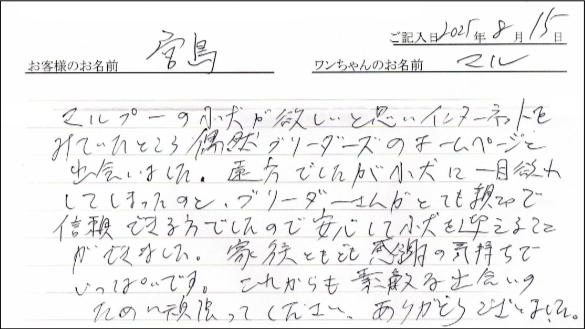 ご記入日 2025年 8月 15日
お客様のお名前 宮島 ワンちゃんのお名前 マル
マルプーの小犬が欲しいと思いインターネットを
みていたところ偶然ブリーダーズのホームページと
出会いました。遠方でしたが小犬に一目惚れ
してしまったのと、ブリーダーさんがとても親切で
信頼できる方でしたので安心して小犬を迎えること
ができました。家族ともども感謝の気持ちで
いっぱいです。これからも素敵な出会いの
ために頑張ってください。ありがとうございました。